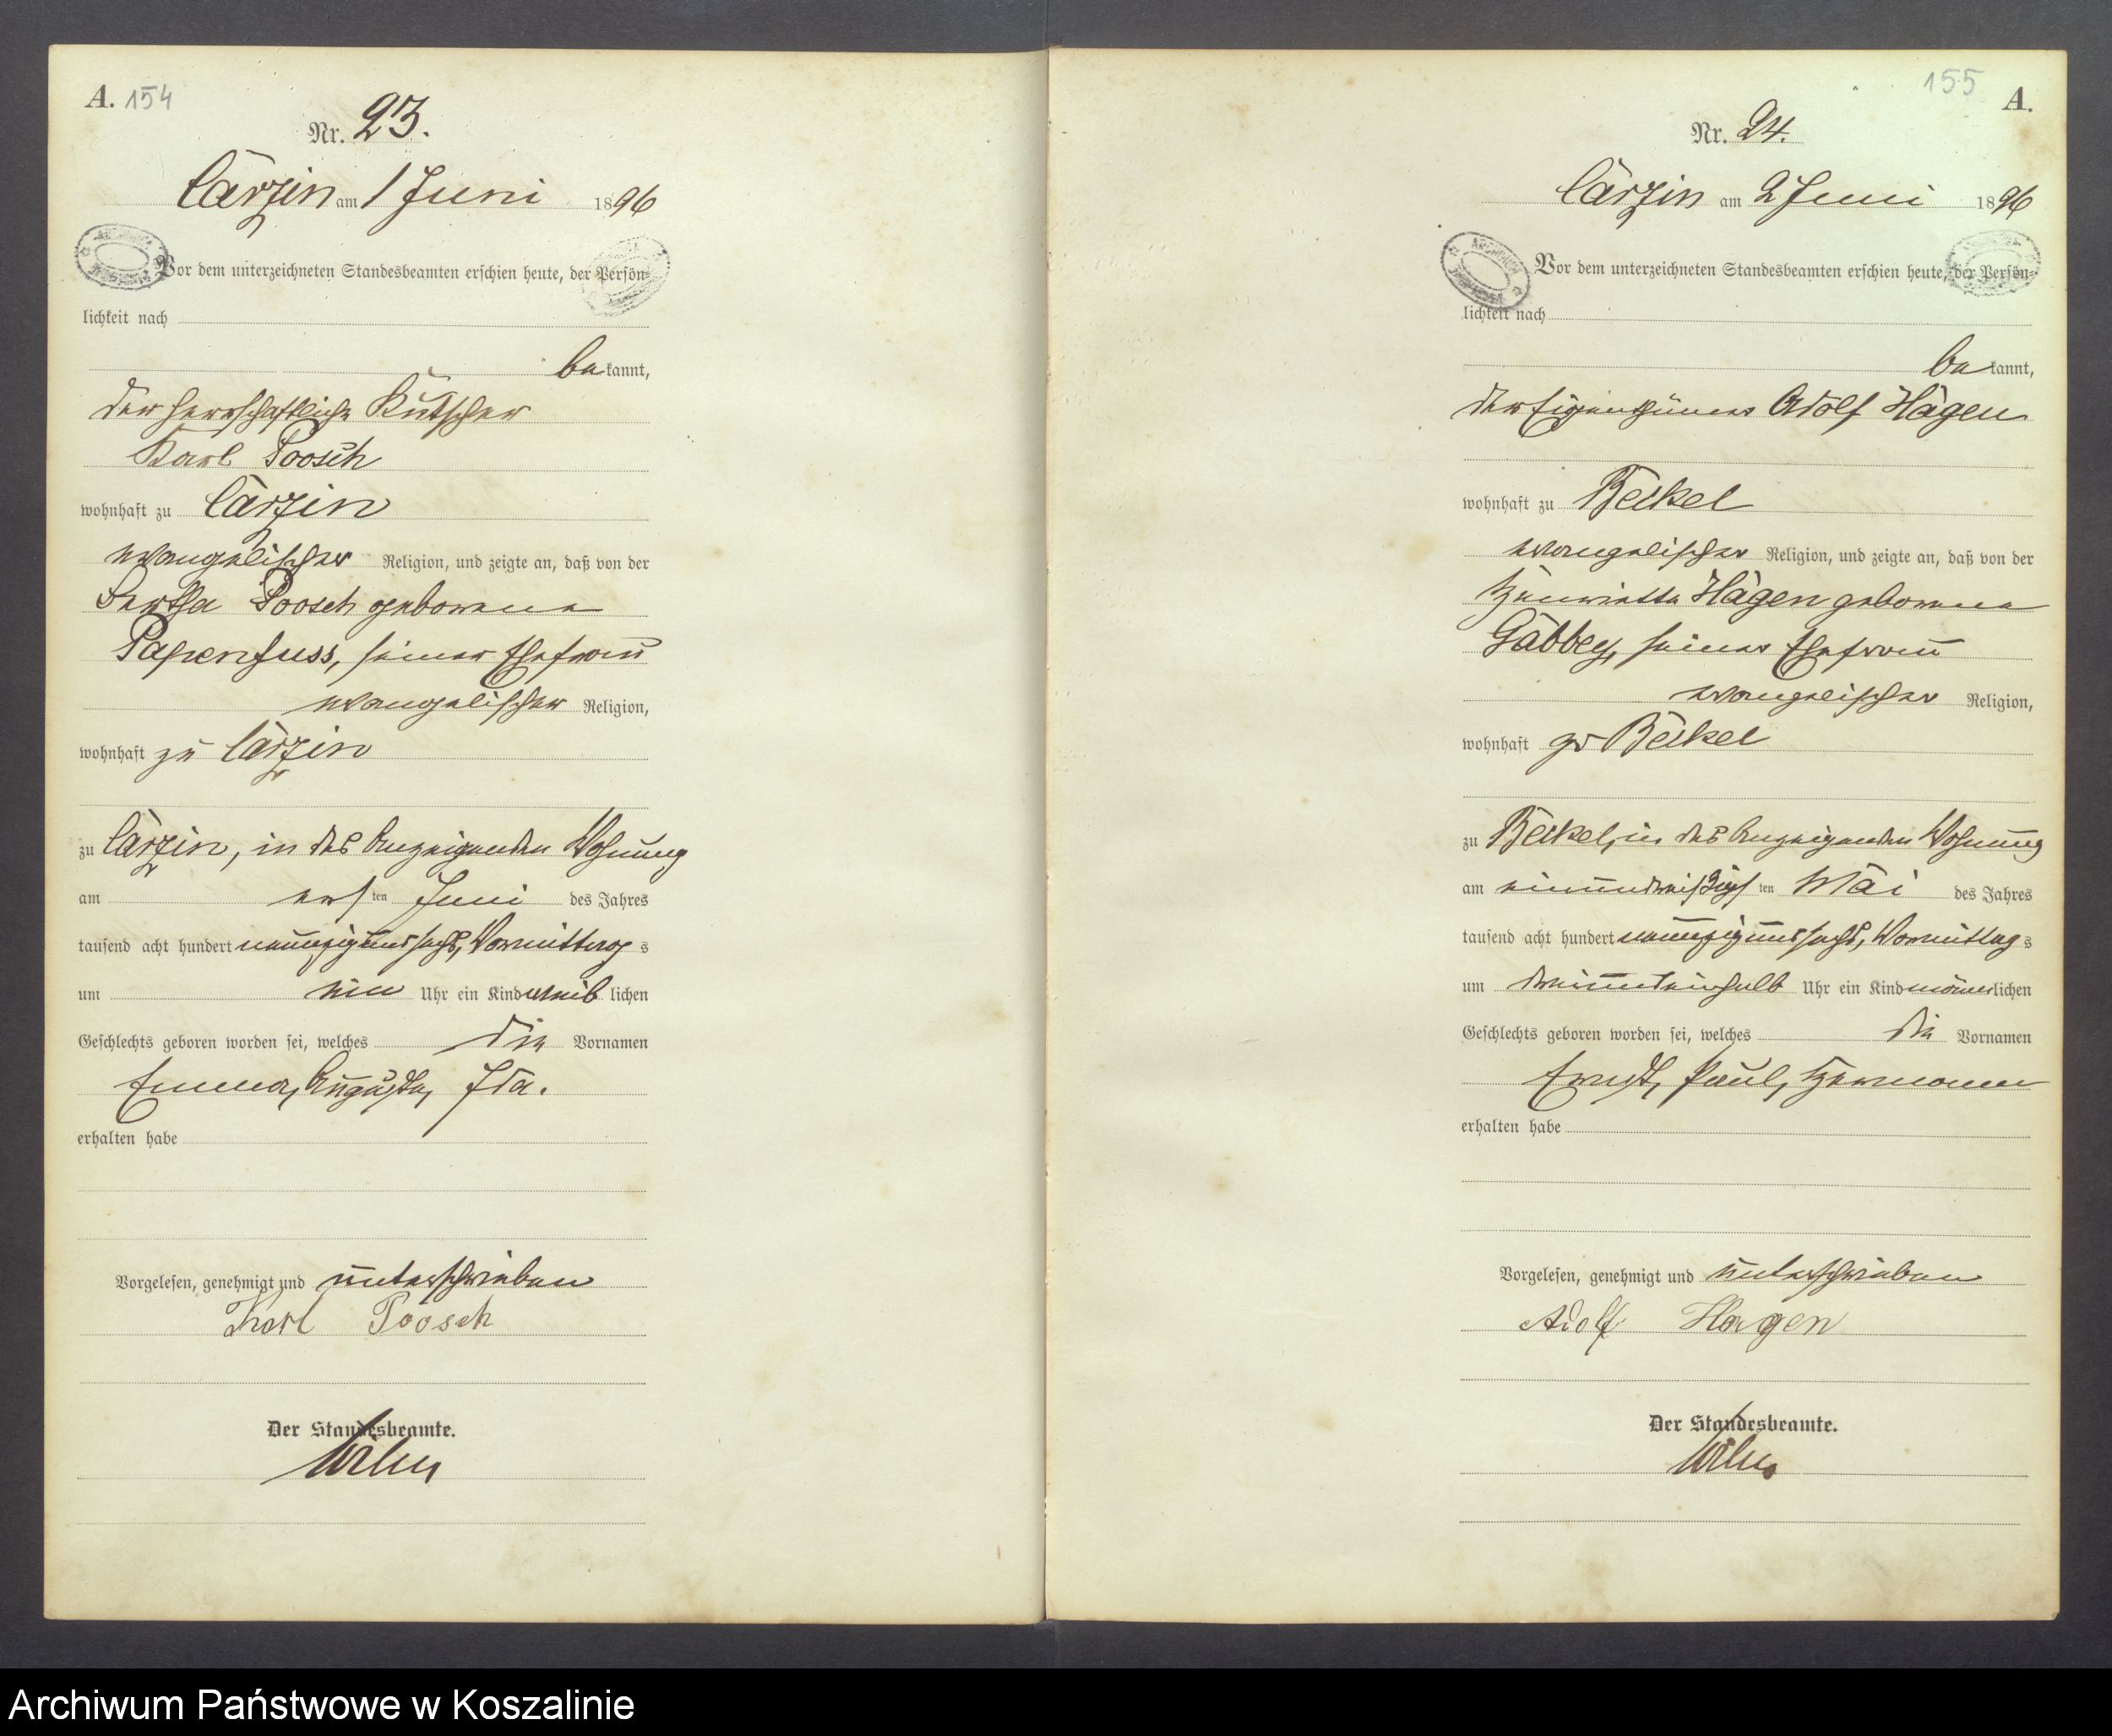 A. 154
Nr. 23.
Carzin am 1 Juni 1896
Vor dem unterzeichneten Standesbeamten erschien heute, der Persön-
lichkeit nach
bekannt,
der herrschaftliche Kutscher
Karl Poosch
wohnhaft zu Carzin
evangelischer Religion, und zeigte an, daß von der
Bertha Poosch geborene
Papenfuss, seiner Ehefrau
evangelischer Religion,
wohnhaft zu Carzin
zu Carzin, in des Anzeigenden Wohnung
am ersten Juni des Jahres
tausend acht hundert neunzig und sechs, Vormittags
um ein Uhr ein Kind weiblichen
Geschlechts geboren worden sei, welches die Vornamen
Emma, Auguste, Ida.
erhalten habe
Vorgelesen, genehmigt und unterschrieben
Karl Poosch
Der Standesbeamte.
155 A.
Nr. 24.
Carzin am 2 Juni 1896
Vor dem unterzeichneten Standesbeamten erschien heute, der Persön-
lichkeit nach
bekannt,
der Eigenthümer Adolf Hagen
wohnhaft zu Beckel
evangelischer Religion, und zeigte an, daß von der
Henriette Hagen geborene
Gabbey, seiner Ehefrau
evangelischer Religion,
wohnhaft zu Beckel
zu Beckel, in des Anzeigenden Wohnung
am einunddreißigsten Mai des Jahres
tausend acht hundert neunzig und sechs, Vormittags
um dreiundeinhalb Uhr ein Kind männlichen
Geschlechts geboren worden sei, welches die Vornamen
Ernst, Paul, Hermann
erhalten habe
Vorgelesen, genehmigt und unterschrieben
Adolf Hagen
Der Standesbeamte.
Archiwum Państwowe w Koszalinie